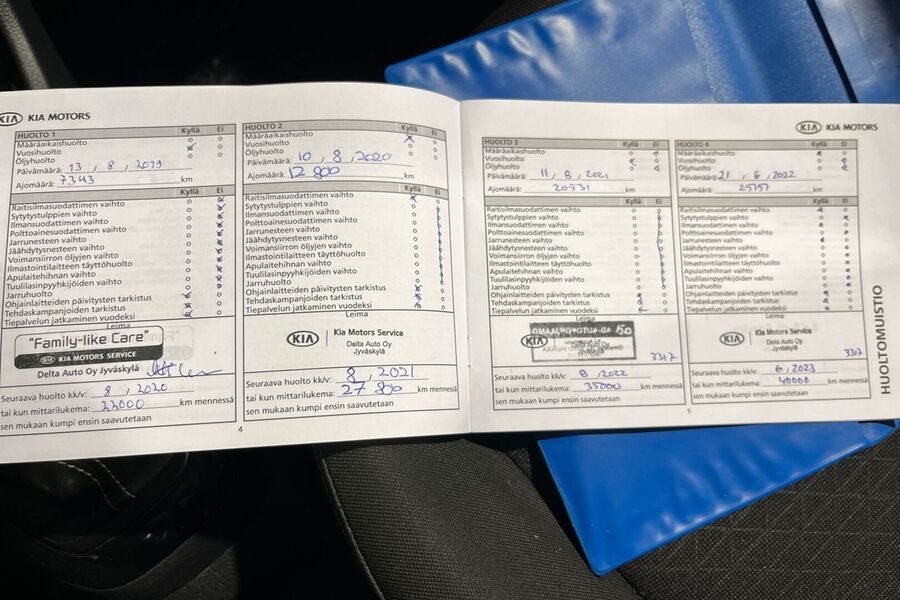 KIA KIA MOTORS
HUOLTO 1 Kyllä Ei
Määräaikaishuolto
Vuosihuolto
Öljyhuolto
Päivämäärä: 13, 8, 2019
Ajomäärä: 7343 km
Kyllä Ei
Raitisilmasuodattimen vaihto
Sytytystulppien vaihto
Ilmansuodattimen vaihto
Polttoainesuodattimen vaihto
Jarrunesteen vaihto
Jäähdytysnesteen vaihto
Voimansiirron öljyjen vaihto
Ilmastointilaitteen täyttöhuolto
Apulaitehihnan vaihto
Tuulilasinpyyhkijöiden vaihto
Jarruhuolto
Ohjainlaitteiden päivitysten tarkistus
Tehdaskampanjoiden tarkistus
Tiepalvelun jatkaminen vuodeksi
Leima
"Family-like Care"
KIA MOTORS SERVICE
Delta Auto Oy Jyväskylä
Seuraava huolto kk/v: 8, 2020
tai kun mittarilukema: 22000 km mennessä
sen mukaan kumpi ensin saavutetaan
4
HUOLTO 2 Kyllä Ei
Määräaikaishuolto
Vuosihuolto
Öljyhuolto
Päivämäärä: 10, 8, 2020
Ajomäärä: 12800 km
Kyllä Ei
Raitisilmasuodattimen vaihto
Sytytystulppien vaihto
Ilmansuodattimen vaihto
Polttoainesuodattimen vaihto
Jarrunesteen vaihto
Jäähdytysnesteen vaihto
Voimansiirron öljyjen vaihto
Ilmastointilaitteen täyttöhuolto
Apulaitehihnan vaihto
Tuulilasinpyyhkijöiden vaihto
Jarruhuolto
Ohjainlaitteiden päivitysten tarkistus
Tehdaskampanjoiden tarkistus
Tiepalvelun jatkaminen vuodeksi
Leima
KIA Kia Motors Service
Delta Auto Oy
Jyväskylä
Seuraava huolto kk/v: 8, 2021
tai kun mittarilukema: 27 800 km mennessä
sen mukaan kumpi ensin saavutetaan
KIA KIA MOTORS
HUOLTO 3 Kyllä Ei
Määräaikaishuolto
Vuosihuolto
Öljyhuolto
Päivämäärä: 11, 8, 2021
Ajomäärä: 20531 km
Kyllä Ei
Raitisilmasuodattimen vaihto
Sytytystulppien vaihto
Ilmansuodattimen vaihto
Polttoainesuodattimen vaihto
Jarrunesteen vaihto
Jäähdytysnesteen vaihto
Voimansiirron öljyjen vaihto
Ilmastointilaitteen täyttöhuolto
Apulaitehihnan vaihto
Tuulilasinpyyhkijöiden vaihto
Jarruhuolto
Ohjainlaitteiden päivitysten tarkistus
Tehdaskampanjoiden tarkistus
Tiepalvelun jatkaminen vuodeksi
Leima
KIA
Jyväskylä
3317
Seuraava huolto kk/v: 8, 2022
tai kun mittarilukema: 35000 km mennessä
sen mukaan kumpi ensin saavutetaan
5
HUOLTO 4 Kyllä Ei
Määräaikaishuolto
Vuosihuolto
Öljyhuolto
Päivämäärä: 21, 6, 2022
Ajomäärä: 25157 km
Kyllä Ei
Raitisilmasuodattimen vaihto
Sytytystulppien vaihto
Ilmansuodattimen vaihto
Polttoainesuodattimen vaihto
Jarrunesteen vaihto
Jäähdytysnesteen vaihto
Voimansiirron öljyjen vaihto
Ilmastointilaitteen täyttöhuolto
Apulaitehihnan vaihto
Tuulilasinpyyhkijöiden vaihto
Jarruhuolto
Ohjainlaitteiden päivitysten tarkistus
Tehdaskampanjoiden tarkistus
Tiepalvelun jatkaminen vuodeksi
Leima
KIA Kia Motors Service
Delta Auto Oy
Jyväskylä
3317
Seuraava huolto kk/v: 6, 2023
tai kun mittarilukema: 40000 km mennessä
sen mukaan kumpi ensin saavutetaan
HUOLTOMUISTIO